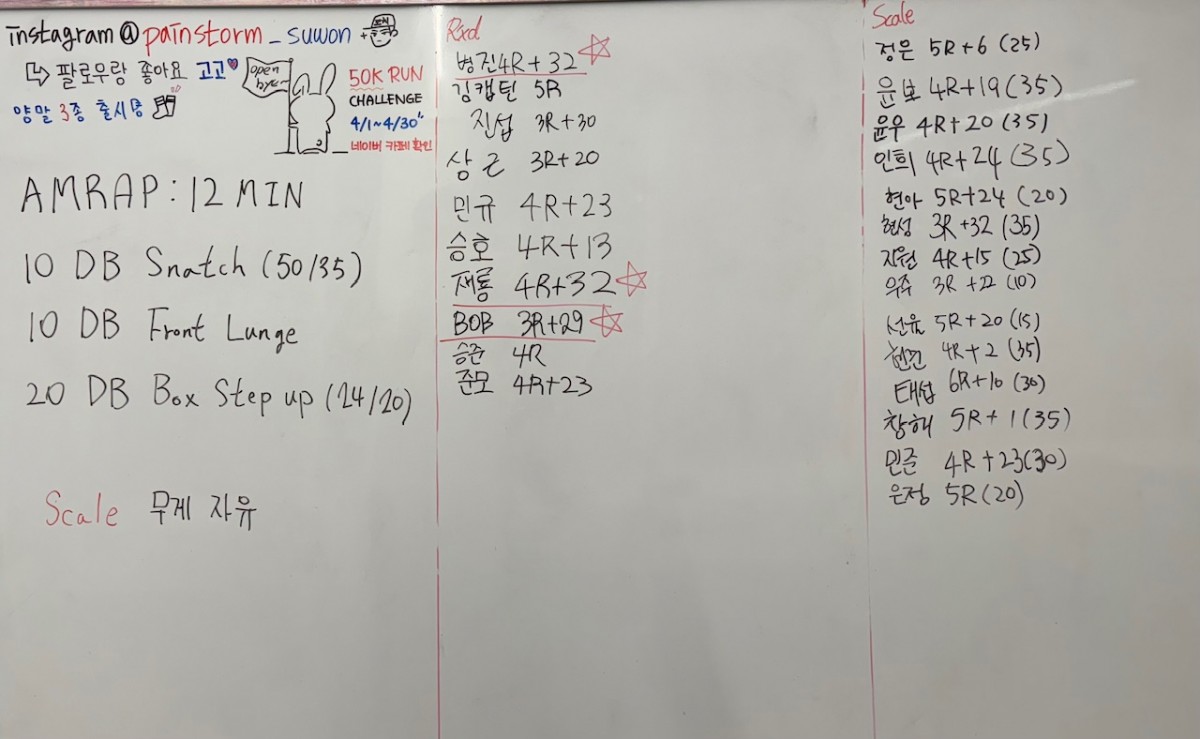 instagram@painstorm_suwon
팔로우랑 좋아요 고고
양말 3종 출시중
open
50K RUN
CHALLENGE
4/1~4/30"
네이버 카페 확인
AMRAP: 12 MIN
10 DB Snatch (50/35)
10 DB Front Lunge
20 DB Box Step up (24/20)
Scale 무게 자유
Rxd
병진 4R+32
김캡틴 5R
진섭 3R+30
상근 3R+20
민규 4R+23
승호 4R+13
재룡 4R+32
BOB 3R+29
승준 4R
준모 4R+23
Scale
정은 5R+6 (25)
윤보 4R+19 (35)
윤우 4R+20 (35)
인희 4R+24 (35)
현아 5R+24 (20)
현성 3R+32 (35)
지원 4R+15 (25)
우주 3R+22 (10)
선유 5R+20 (15)
4R+2 (35)
태섭 6R+10 (30)
창해 5R+1 (35)
민준 4R+23 (30)
은정 5R (20)